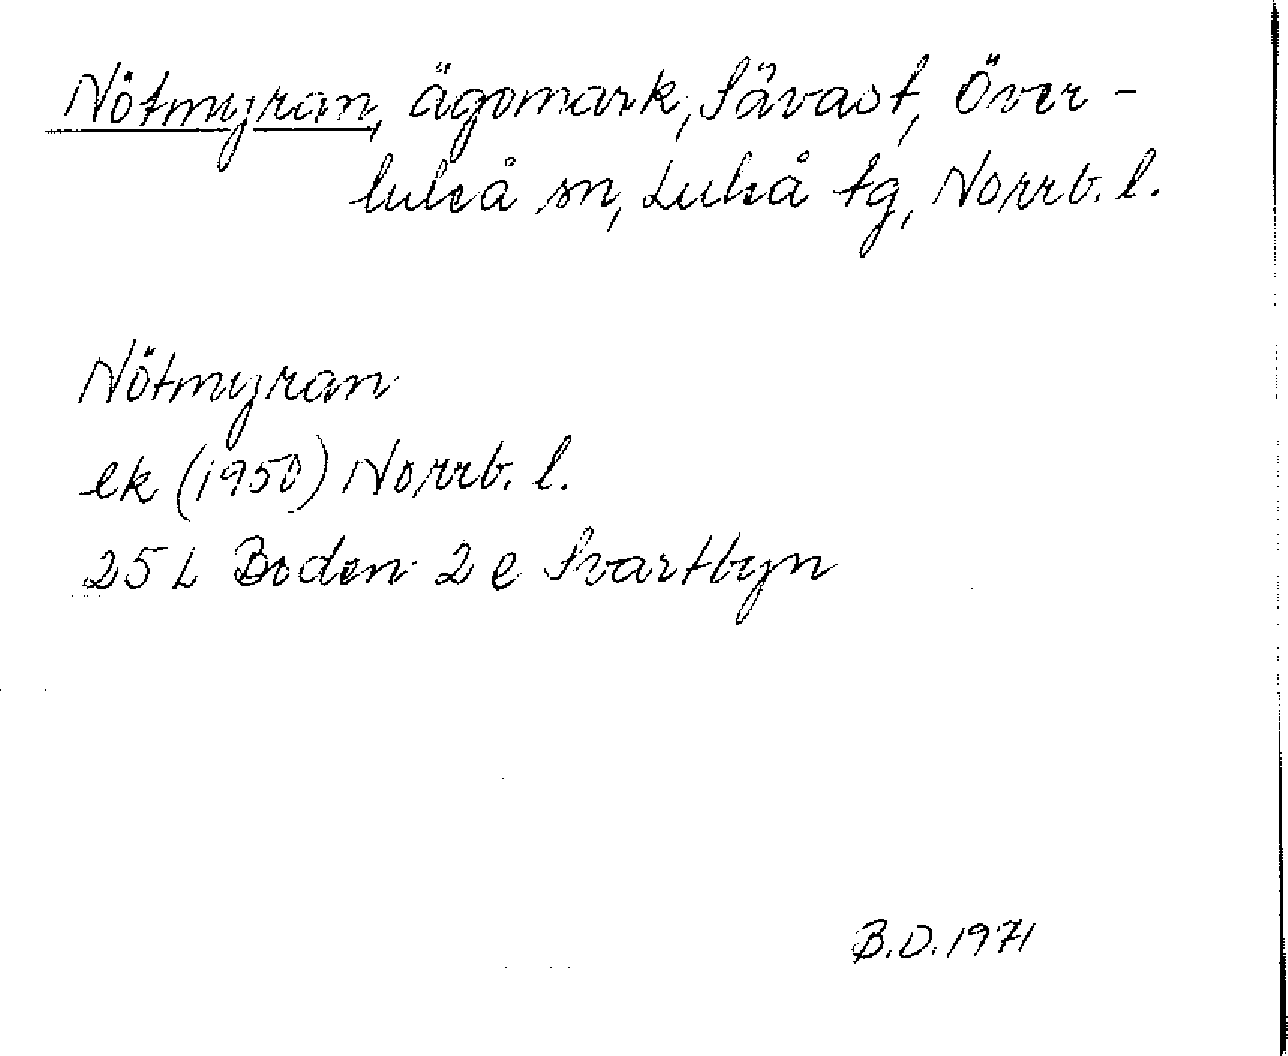 Nötmyran, ägomark, Sävast, Över-
luleå sn, Luleå tg, Norrb. l.
Nötmyran
ek (1950) Norrb. l.
25 L Boden 2 e Svartbyn
B.D. 1971